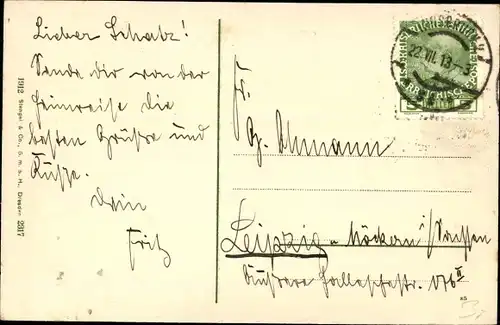 Lieber Schatz!
Sende dir von der
Heimreise die
besten Grüße und
Küsse.
Dein
Fritz
1912 Stengel & Co., G. m. b. H., Dresden 29317
Fr.
Ahmann
Leipzig-Möckern/Sachsen
Äussere Halleschestr. 176 II
22.VII.13
5